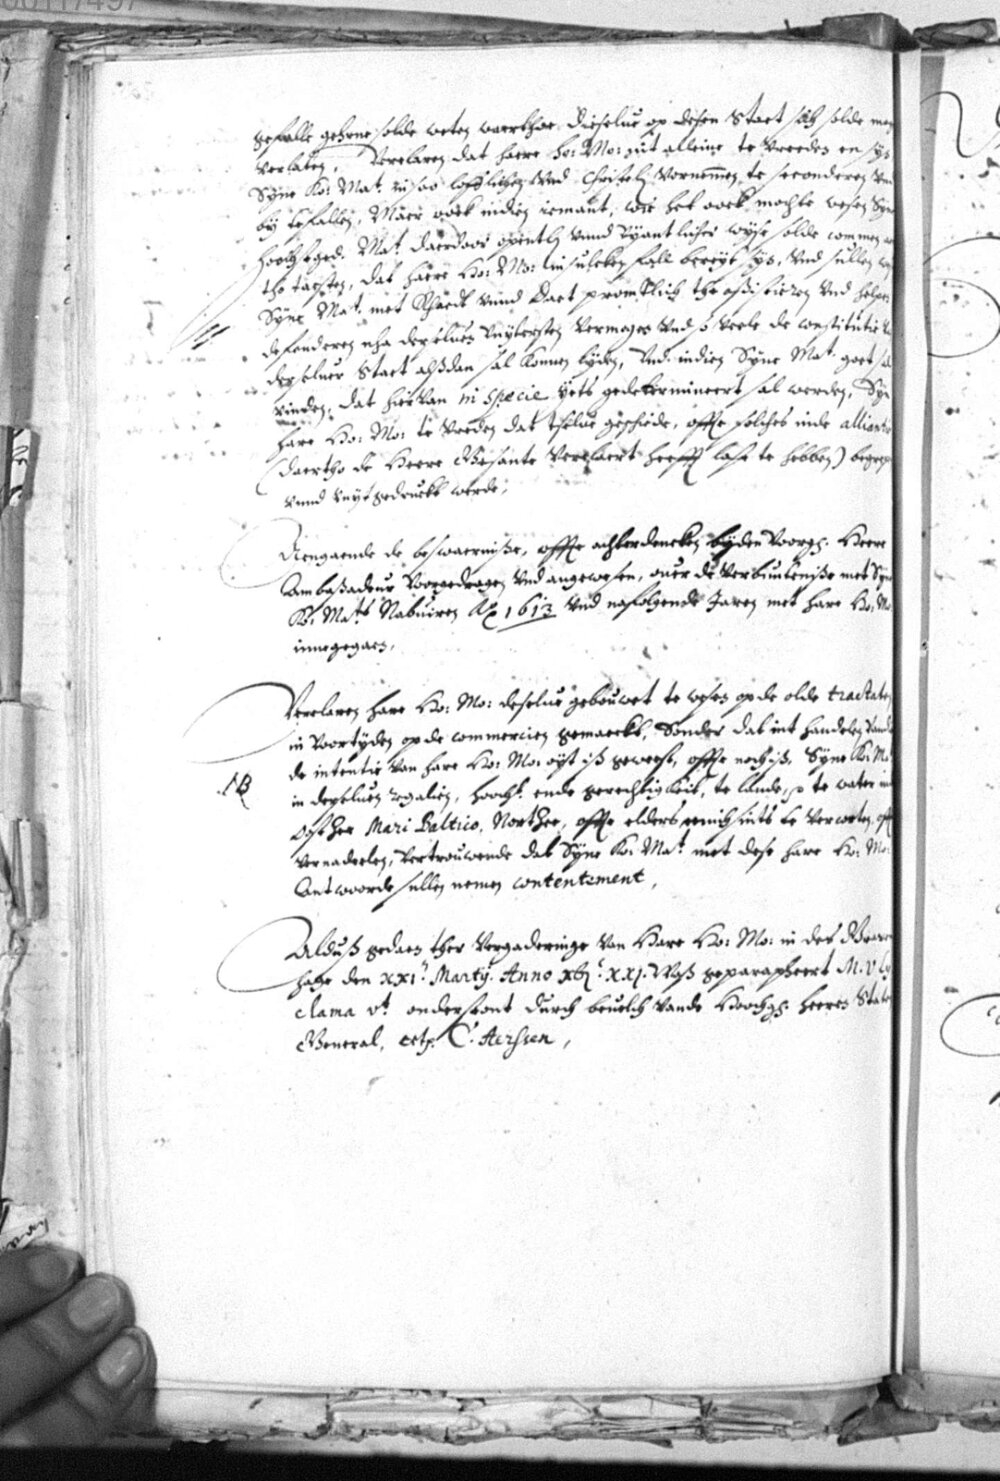 gefalle gehrne solde weten waerthoe dieselue op desen Staet sich solde mog
verlaten, Verclaren dat haere Ho: Mo: nit alleine te vreeden en syn
Syne Ko: Mat. in soo lofflichen vnd Christelichen vornemen te seconderen vnd
by tefallen, Maer oock indien iemant, wie het oock mochte wesen Syne
hoochstged. Mat. daerdoor opentlich vnnd Tyrantlicher wyse solde commen
tho tasten, dat haere Ho: Mo: in sulcken fall bereyt syn, vnd sullen
Syne Mat. met Rhaedt vnnd Daet promptlich tho assistieren vnd helpen
defenderen nha derseluer vuytersten vermogen vnd so veele de constitutie
derseluer Staet alßdan sal konnen lyden, vnd indien Syne Mat. goet
vinden, dat hiervan in specie yets gedetermineert sal werden, Syn
hare Ho: Mo: te vreden dat tselue geschiede, offte solches inde alliantie
(daertho de Heere Gesante verclaert heefft last te hebben) begrepen
vnnd vuytgedruckt werde,
Aengaende de beswaernisse, offte achterdencken by den voorgs. Heere
Ambassadeur voorgedragen vnd angewesen, ouer de verbintenisse met Syne
Ko: Mats. Nabuiren Ao 1613 vnd nafolgende Jaren met hare Ho: Mo:
innegegaen,
Verclaren hare Ho: Mo: deselue gebouwet te wesen op de olde tractaten
in voortyden op de commercien gemaeckt, Sonder dat int handelen vande
de intentie van hare Ho: Mo: oyt iß geweest, offte noch iß, Syne Ko: Ma
NB
in deszeluen regalien, hoocht. ende gerechtigkeit, te lande, o te water in
Osthee Mari Baltico, Northee, offte elders einichsints te vercorten, offte
vernadeelen, vertrouwende dat Syne Ko: Mat. met dese hare Ho: Mo:
Antwoorde sullen nemen contentement,
Alduß gedaen ther vergaderinge van Hare Ho: Mo: in des Graven
hage den xxi. Martij. Anno xvjc. xxj. Waß geparapheert M. v Ly
clama vt. onderstont durch beuelch vande Hoochgs. heeren Staten
General, ectp. C. Aerssen,